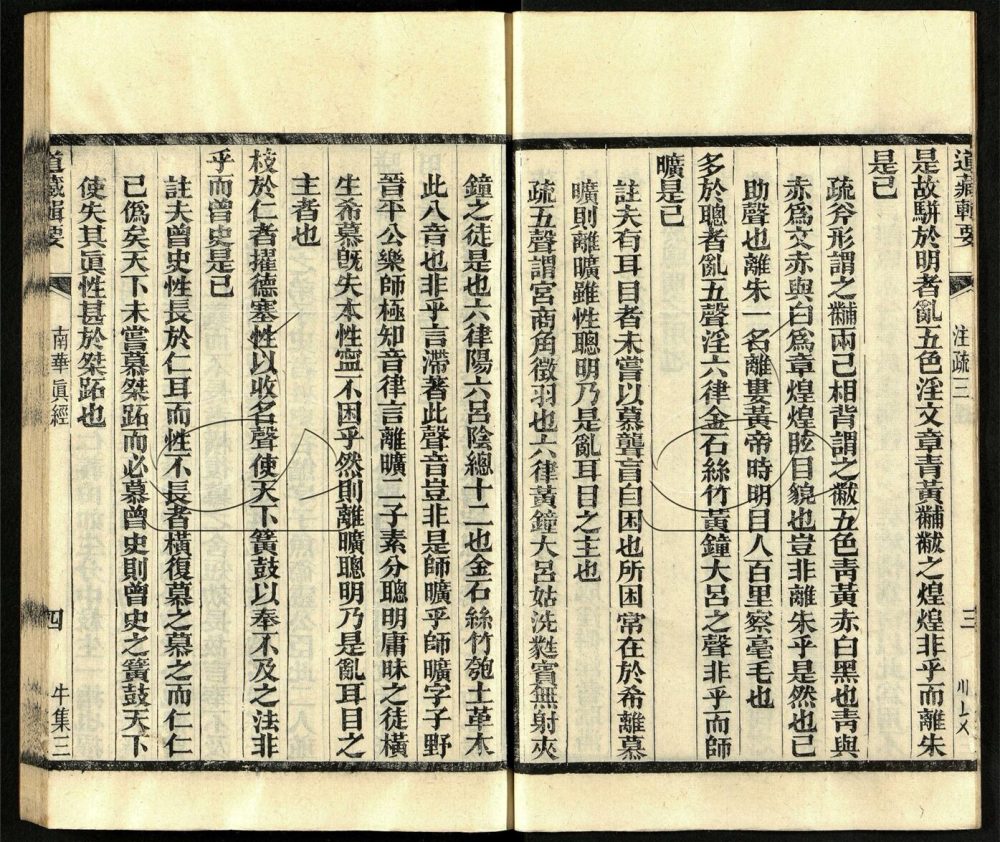 道藏輯要
注疏三
三
是故駢於明者亂五色淫文章青黃黼黻之煌煌非乎而離朱
是已
疏斧形謂之黼兩己相背謂之黻五色青黃赤白黑也青與
赤爲文赤與白爲章煌煌眩目貌也豈非離朱乎是然也已
助聲也離朱一名離婁黃帝時明目人百里察毫毛也
多於聰者亂五聲淫六律金石絲竹黃鐘大呂之聲非乎而師
曠是已
註夫有耳目者未嘗以慕聾盲自困也所困常在於希離慕
曠則離曠雖性聰明乃是亂耳目之主也
疏五聲謂宮商角徵羽也六律黃鐘大呂姑洗蕤賓無射夾
鐘之徒是也六律陽六呂陰總十二也金石絲竹匏土革木
此八音也非乎言滯著此聲音豈非是師曠乎師曠字子野
晉平公樂師極知音律言離曠二子素分聰明庸昧之徒橫
生希慕旣失本性寍不困乎然則離曠聰明乃是亂耳目之
主者也
枝於仁者擢德塞性以收名聲使天下簧鼓以奉不及之法非
乎而曾史是已
註夫曾史性長於仁耳而性不長者橫復慕之慕之而仁仁
已僞矣天下未嘗慕桀跖而必慕曾史則曾史之簧鼓天下
使失其眞性甚於桀跖也
道藏輯要
南華眞經
四
牛集三